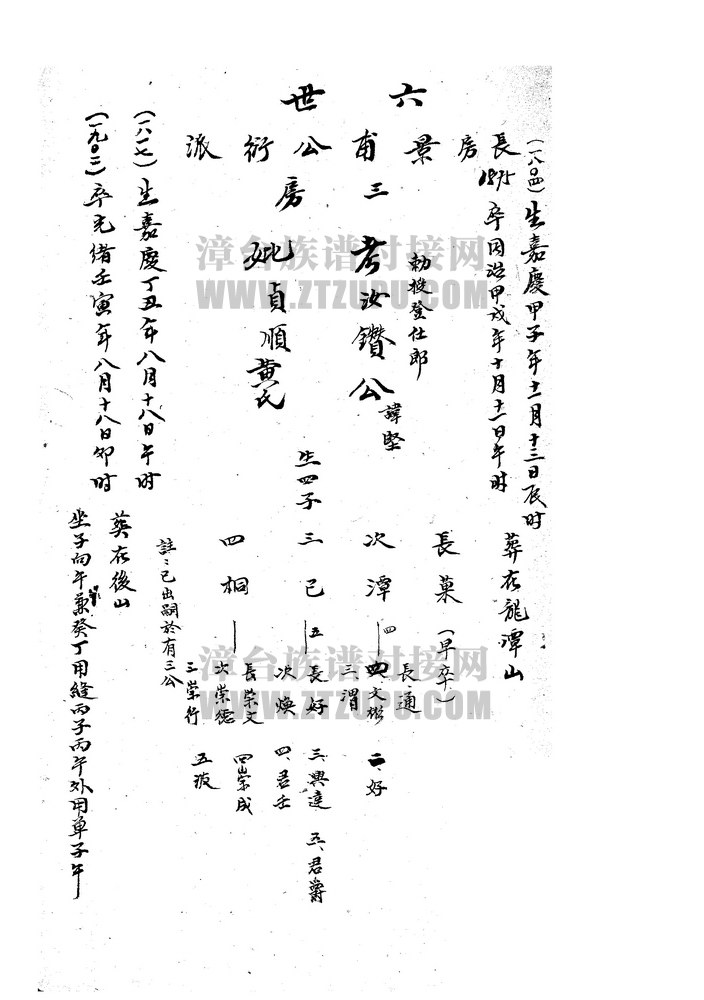 六世
長房景甫三公房衍派
(一八〇四)生嘉慶甲子年十二月十三日辰时
1875 卒同治甲戌年十月十二日午时
葬在龍潭山
勅授登仕郎
考汝鑽公 諱堅
妣貞順黄氏
生四子
長菓(早卒)
次潭 四
長通
二好
三渭
四文彬
三己 五
長好
次煥
三興達
四君壬
五君爵
四桐
長崇文
次崇德
三崇行
四崇成
五玻
註:己出嗣於有三公
(一八一七)生嘉慶丁丑年八月十八日午时
(一九〇二)卒光緒壬寅年八月十八日卯时
葬在後山
坐子向午兼癸丁用縫丙子丙午外用单子午
漳台族谱对接网
WWW.ZTZUPU.COM
漳台族谱对接网
WWW.ZTZUPU.COM